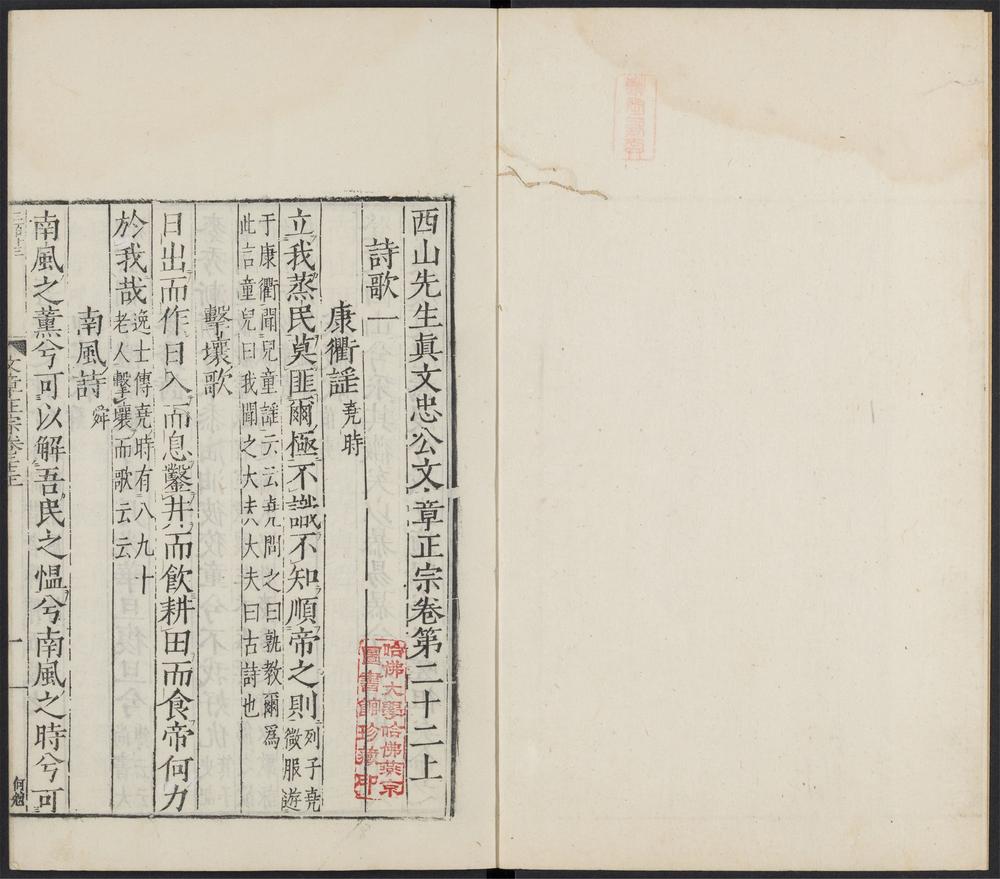 西山先生眞文忠公文章正宗卷第二十二上
詩歌一
康衢謡堯時
立我蒸民莫匪爾極不識不知順帝之則列子堯微服遊
于康衢聞兒童謡云云堯問之曰孰教爾爲
此言童兒曰我聞之大夫大夫曰古詩也
擊壤歌
日出而作日入而息鑿井而飲耕田而食帝何力
於我哉逸士傳堯時有八九十老人擊壤而歌云云
南風詩舜
南風之薰兮可以解吾民之愠兮南風之時兮可
文章正宗卷
一
何勉
哈佛大學哈佛燕京
圖書館珍藏印